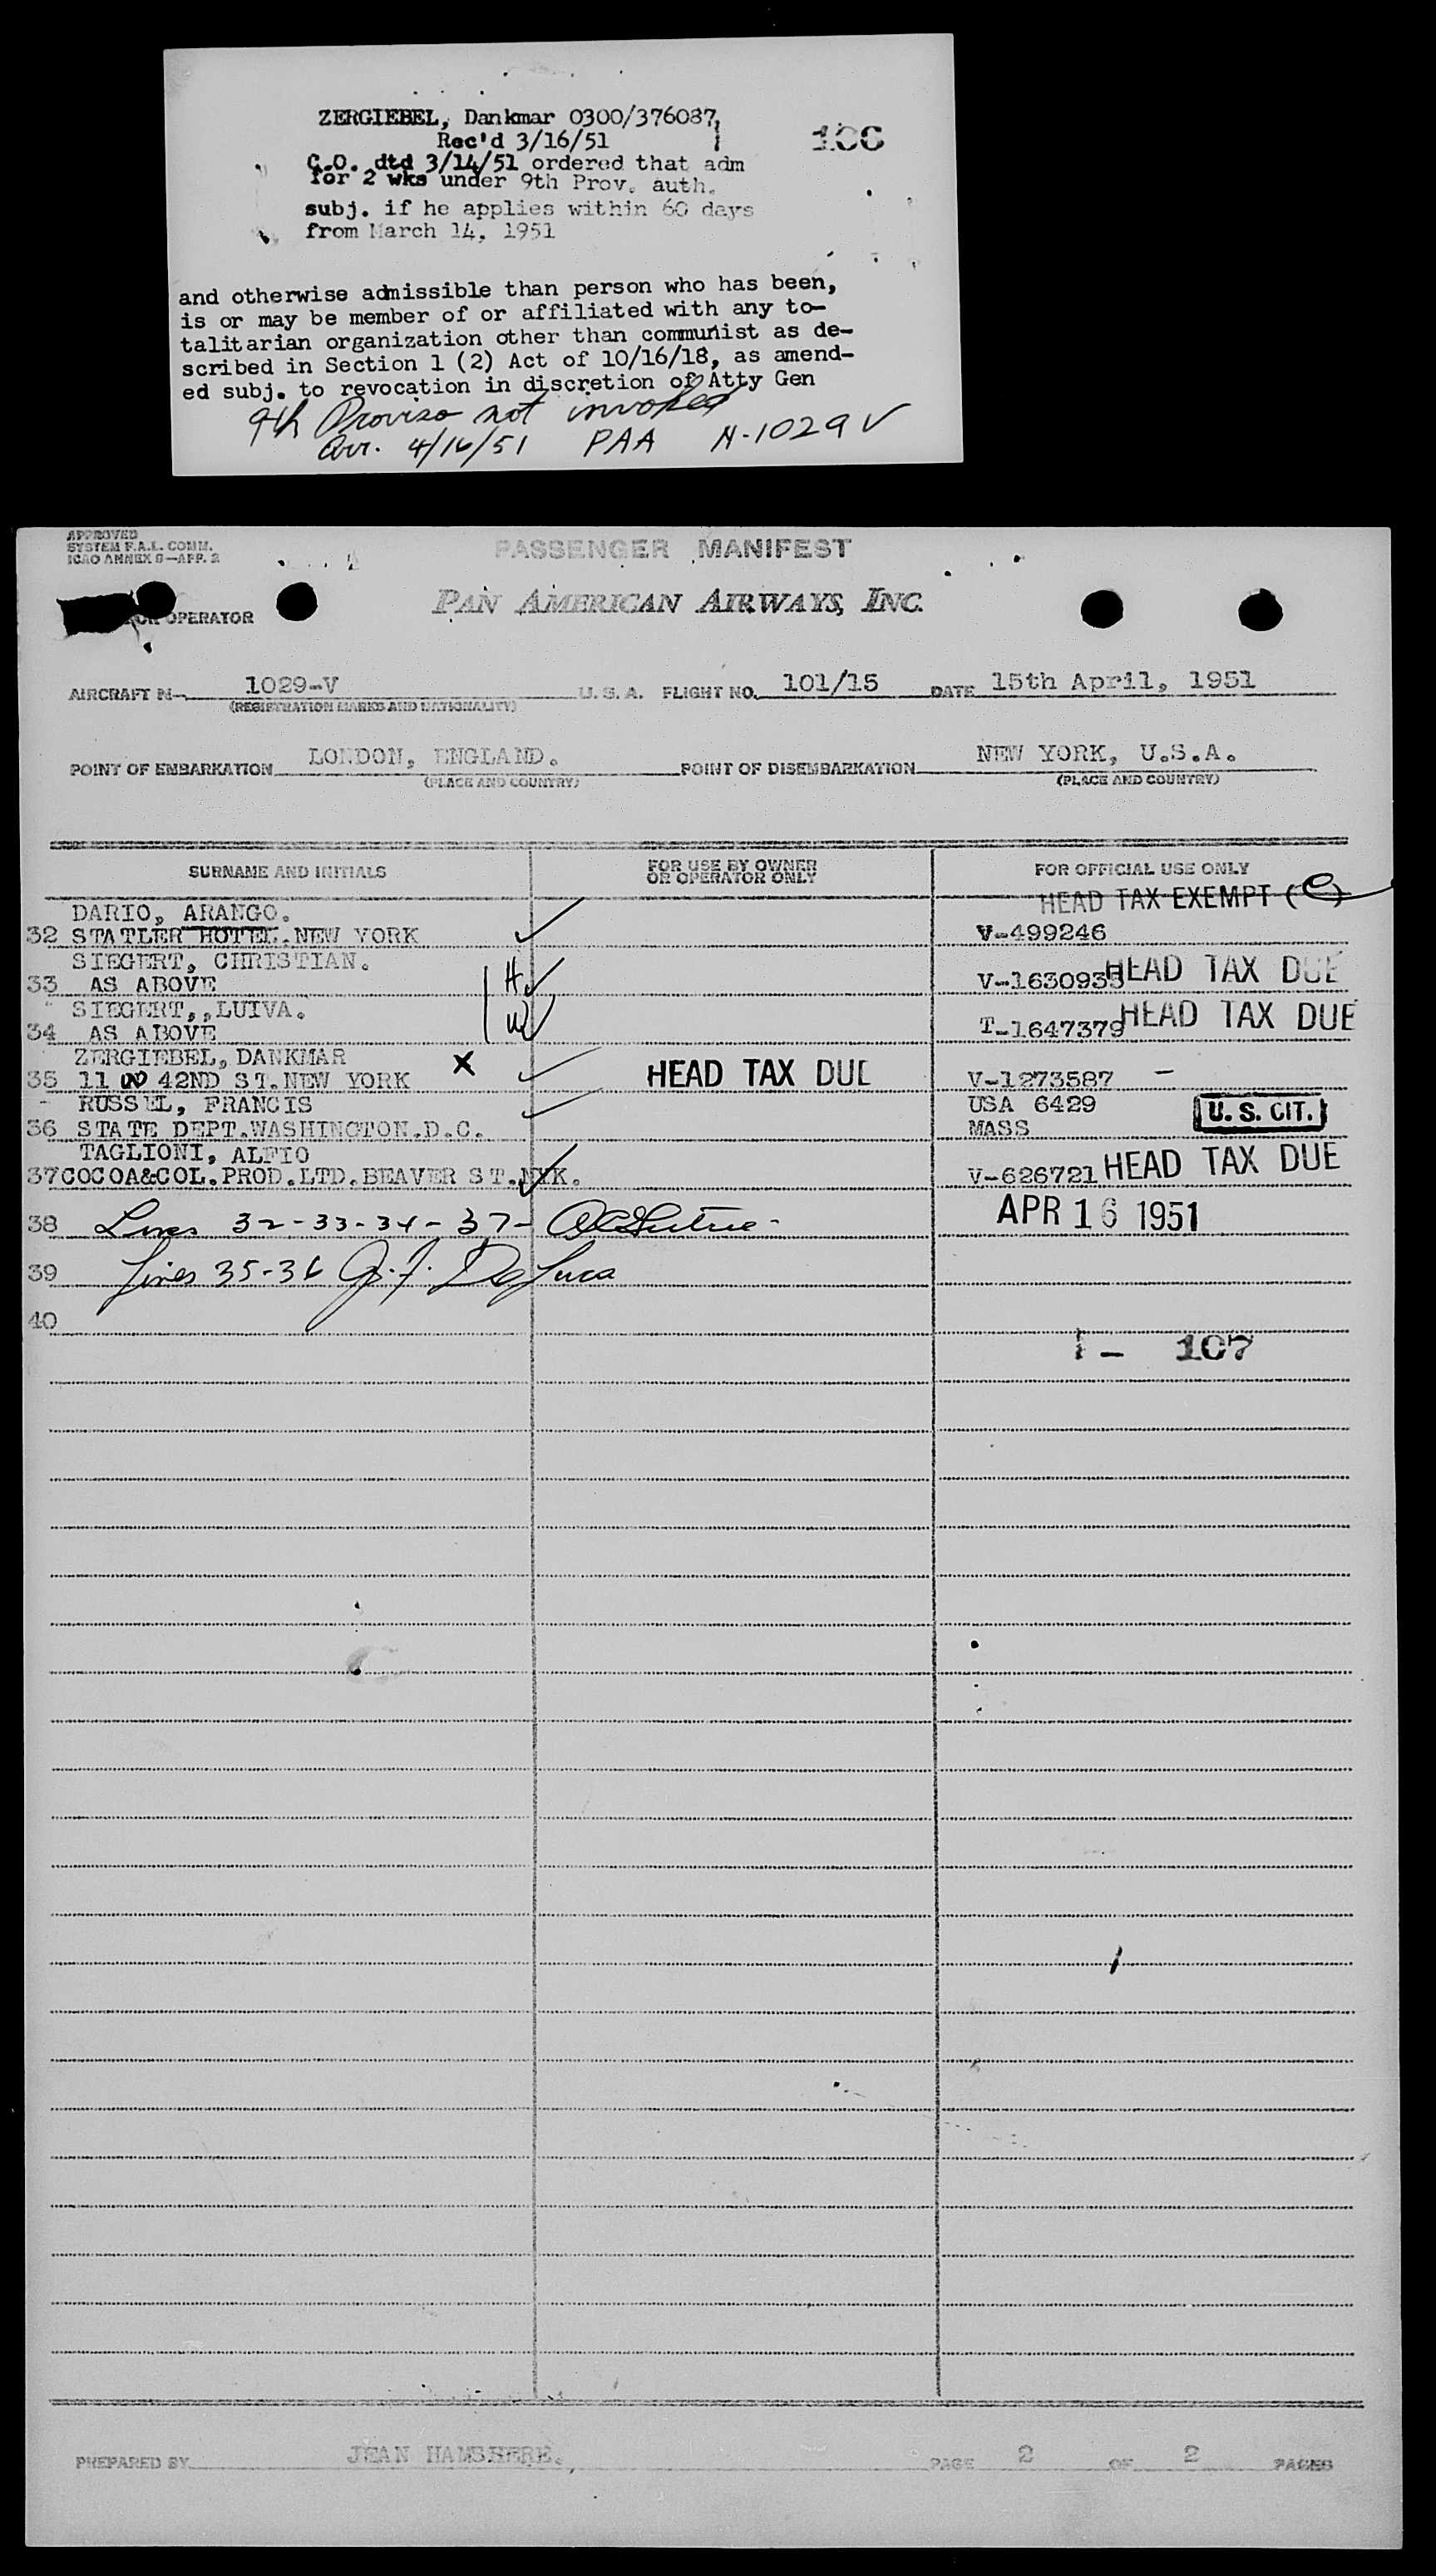 ZERGIEBEL, Dankmar 0300/376087
Rec'd 3/16/51
106
C.O. dtd 3/14/51 ordered that adm
for 2 wks under 9th Prov. auth.
subj. if he applies within 60 days
from March 14, 1951
and otherwise admissible than person who has been,
is or may be member of or affiliated with any to-
talitarian organization other than communist as de-
scribed in Section 1 (2) Act of 10/16/18, as amend-
ed subj. to revocation in discretion of Atty Gen
9th Proviso not invoked
Arr. 4/16/51 PAA N-1029V
APPROVED
SYSTEM F.A.L. COMM.
ICAO ANNEX 9—APP. 2
PASSENGER MANIFEST
OR OPERATOR
PAN AMERICAN AIRWAYS, INC.
AIRCRAFT N- 1029-V U. S. A. FLIGHT NO. 101/15 DATE 15th April, 1951
(REGISTRATION MARKS AND NATIONALITY)
POINT OF EMBARKATION LONDON, ENGLAND. POINT OF DISEMBARKATION NEW YORK, U.S.A.
(PLACE AND COUNTRY) (PLACE AND COUNTRY)
SURNAME AND INITIALS FOR USE BY OWNER OR OPERATOR ONLY FOR OFFICIAL USE ONLY
DARIO, ARANGO. HEAD TAX EXEMPT (C)
32 STATLER HOTEL.NEW YORK V-499246
SIEGERT, CHRISTIAN. H
33 AS ABOVE V-1630935 HEAD TAX DUE
SIEGERT,,LUIVA. W
34 AS ABOVE T-1647379 HEAD TAX DUE
ZERGIEBEL, DANKMAR X
35 11 W 42ND ST.NEW YORK HEAD TAX DUE V-1273587 -
RUSSEL, FRANCIS USA 6429 U. S. CIT.
36 STATE DEPT.WASHINGTON.D.C. MASS
TAGLIONI, ALFIO
37 COCOA&COL.PROD.LTD.BEAVER ST.NYK. V-626721 HEAD TAX DUE
38 Lines 32-33-34-37- APR 16 1951
39 Lines 35-36 J. F. DeLuca
40
1 - 107
PREPARED BY JEAN HAMSHERE. PAGE 2 OF 2 PAGES